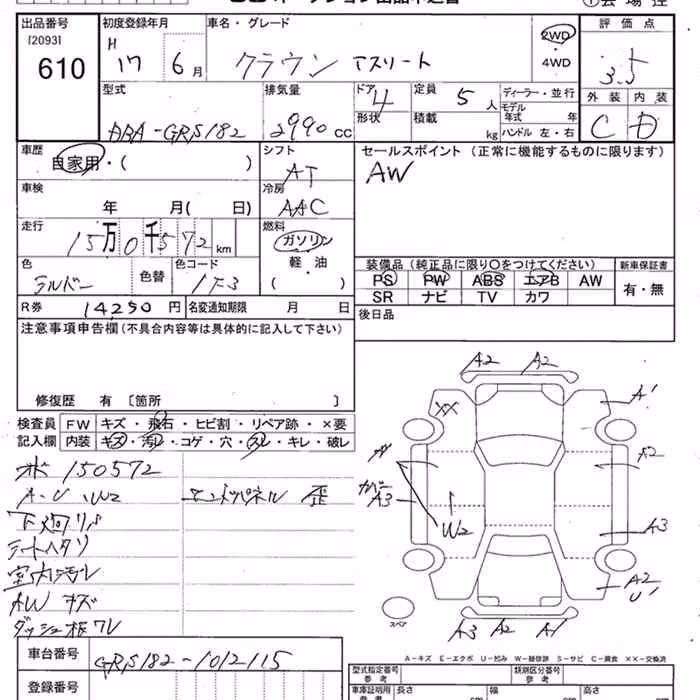 出品番号 初度登録年月 車名・グレード 評価点
[2093] H
610 17 6月 クラウン アスリート 2WD・4WD 3.5
外装 内装
C D
型式 排気量 ドア 4 定員 5人 ディーラー・並行
モデル年式 年式
DBA-GRS182 2990cc 形状 積載 kg ハンドル 左・右
車歴 シフト セールスポイント (正常に機能するものに限ります)
自家用・( ) AT AW
車検 冷房
年 月( 日) AAC
走行 燃料
15万0千572km ガソリン
色 色替 色コード 軽・油 装備品 (純正品に限り○をつけてください) 新車保証書
シルバー 1F3 ( ) PS PW ABS エアB AW 有・無
SR ナビ TV カワ
R券 14250円 名変通知期限 月 日 後日品
注意事項申告欄 (不具合内容等は具体的に記入して下さい)
修復歴 有 〔箇所 〕
検査員 FW キズ・飛石・ヒビ割・リペア跡・×要
記入欄 内装 キズ・汚レ・コゲ・穴・スレ・キレ・破レ
150572
A・U・W2 エンドパネル 歪
下廻リサビ
シートヘタリ
室内汚レ
AW キズ
ダッシュ板ワレ
A2 A2
XX A1
A2
カバー A3
W2 A3
A2
U1
スペア A3 A2 A1
A-キズ E-エクボ U-凹み W-補修跡 S-サビ C-腐食 ××-交換済
車台番号 GRS182-1012115
登録番号
型式指定番号 参考 類別区分番号 参考
車庫証明用 参考 長さ 幅 高さ